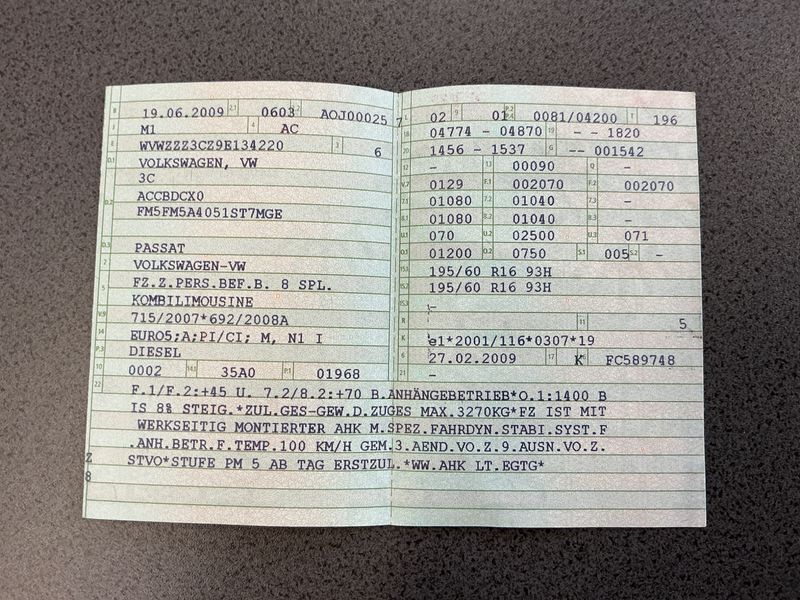 B 19.06.2009 2.1 0603 2.2 AOJ00025 7
J M1 4 AC
E WVWZZZ3CZ9E134220 3 6
D.1 VOLKSWAGEN, VW
3C
D.2 ACCBDCX0
FM5FM5A4051ST7MGE
D.3 PASSAT
2 VOLKSWAGEN-VW
5 FZ.Z.PERS.BEF.B. 8 SPL.
KOMBILIMOUSINE
V.9 715/2007*692/2008A
14 EURO5;A;PI/CI; M, N1 I
P.3 DIESEL
10 0002 14.1 35A0 P.1 01968
L 02 9 01 P.2 P.4 0081/04200 T 196
18 04774 - 04870 19 - - 1820
20 1456 - 1537 G -- 001542
12 - 13 00090 Q -
V.7 0129 F.1 002070 F.2 002070
7.1 01080 7.2 01040 7.3 -
8.1 01080 8.2 01040 8.3 -
U.1 070 U.2 02500 U.3 071
O.1 01200 O.2 0750 S.1 005 S.2 -
15.1 195/60 R16 93H
15.2 195/60 R16 93H
15.3 -
R 11 5
K e1*2001/116*0307*19
6 27.02.2009 17 K 16 FC589748
21 -
22 F.1/F.2:+45 U. 7.2/8.2:+70 B.ANHÄNGEBETRIEB*O.1:1400 B
IS 8% STEIG.*ZUL.GES-GEW.D.ZUGES MAX.3270KG*FZ IST MIT
WERKSEITIG MONTIERTER AHK M.SPEZ.FAHRDYN.STABI.SYST.F
.ANH.BETR.F.TEMP.100 KM/H GEM.3.AEND.VO.Z.9.AUSN.VO.Z.
Z STVO*STUFE PM 5 AB TAG ERSTZUL.*WW.AHK LT.EGTG*
8